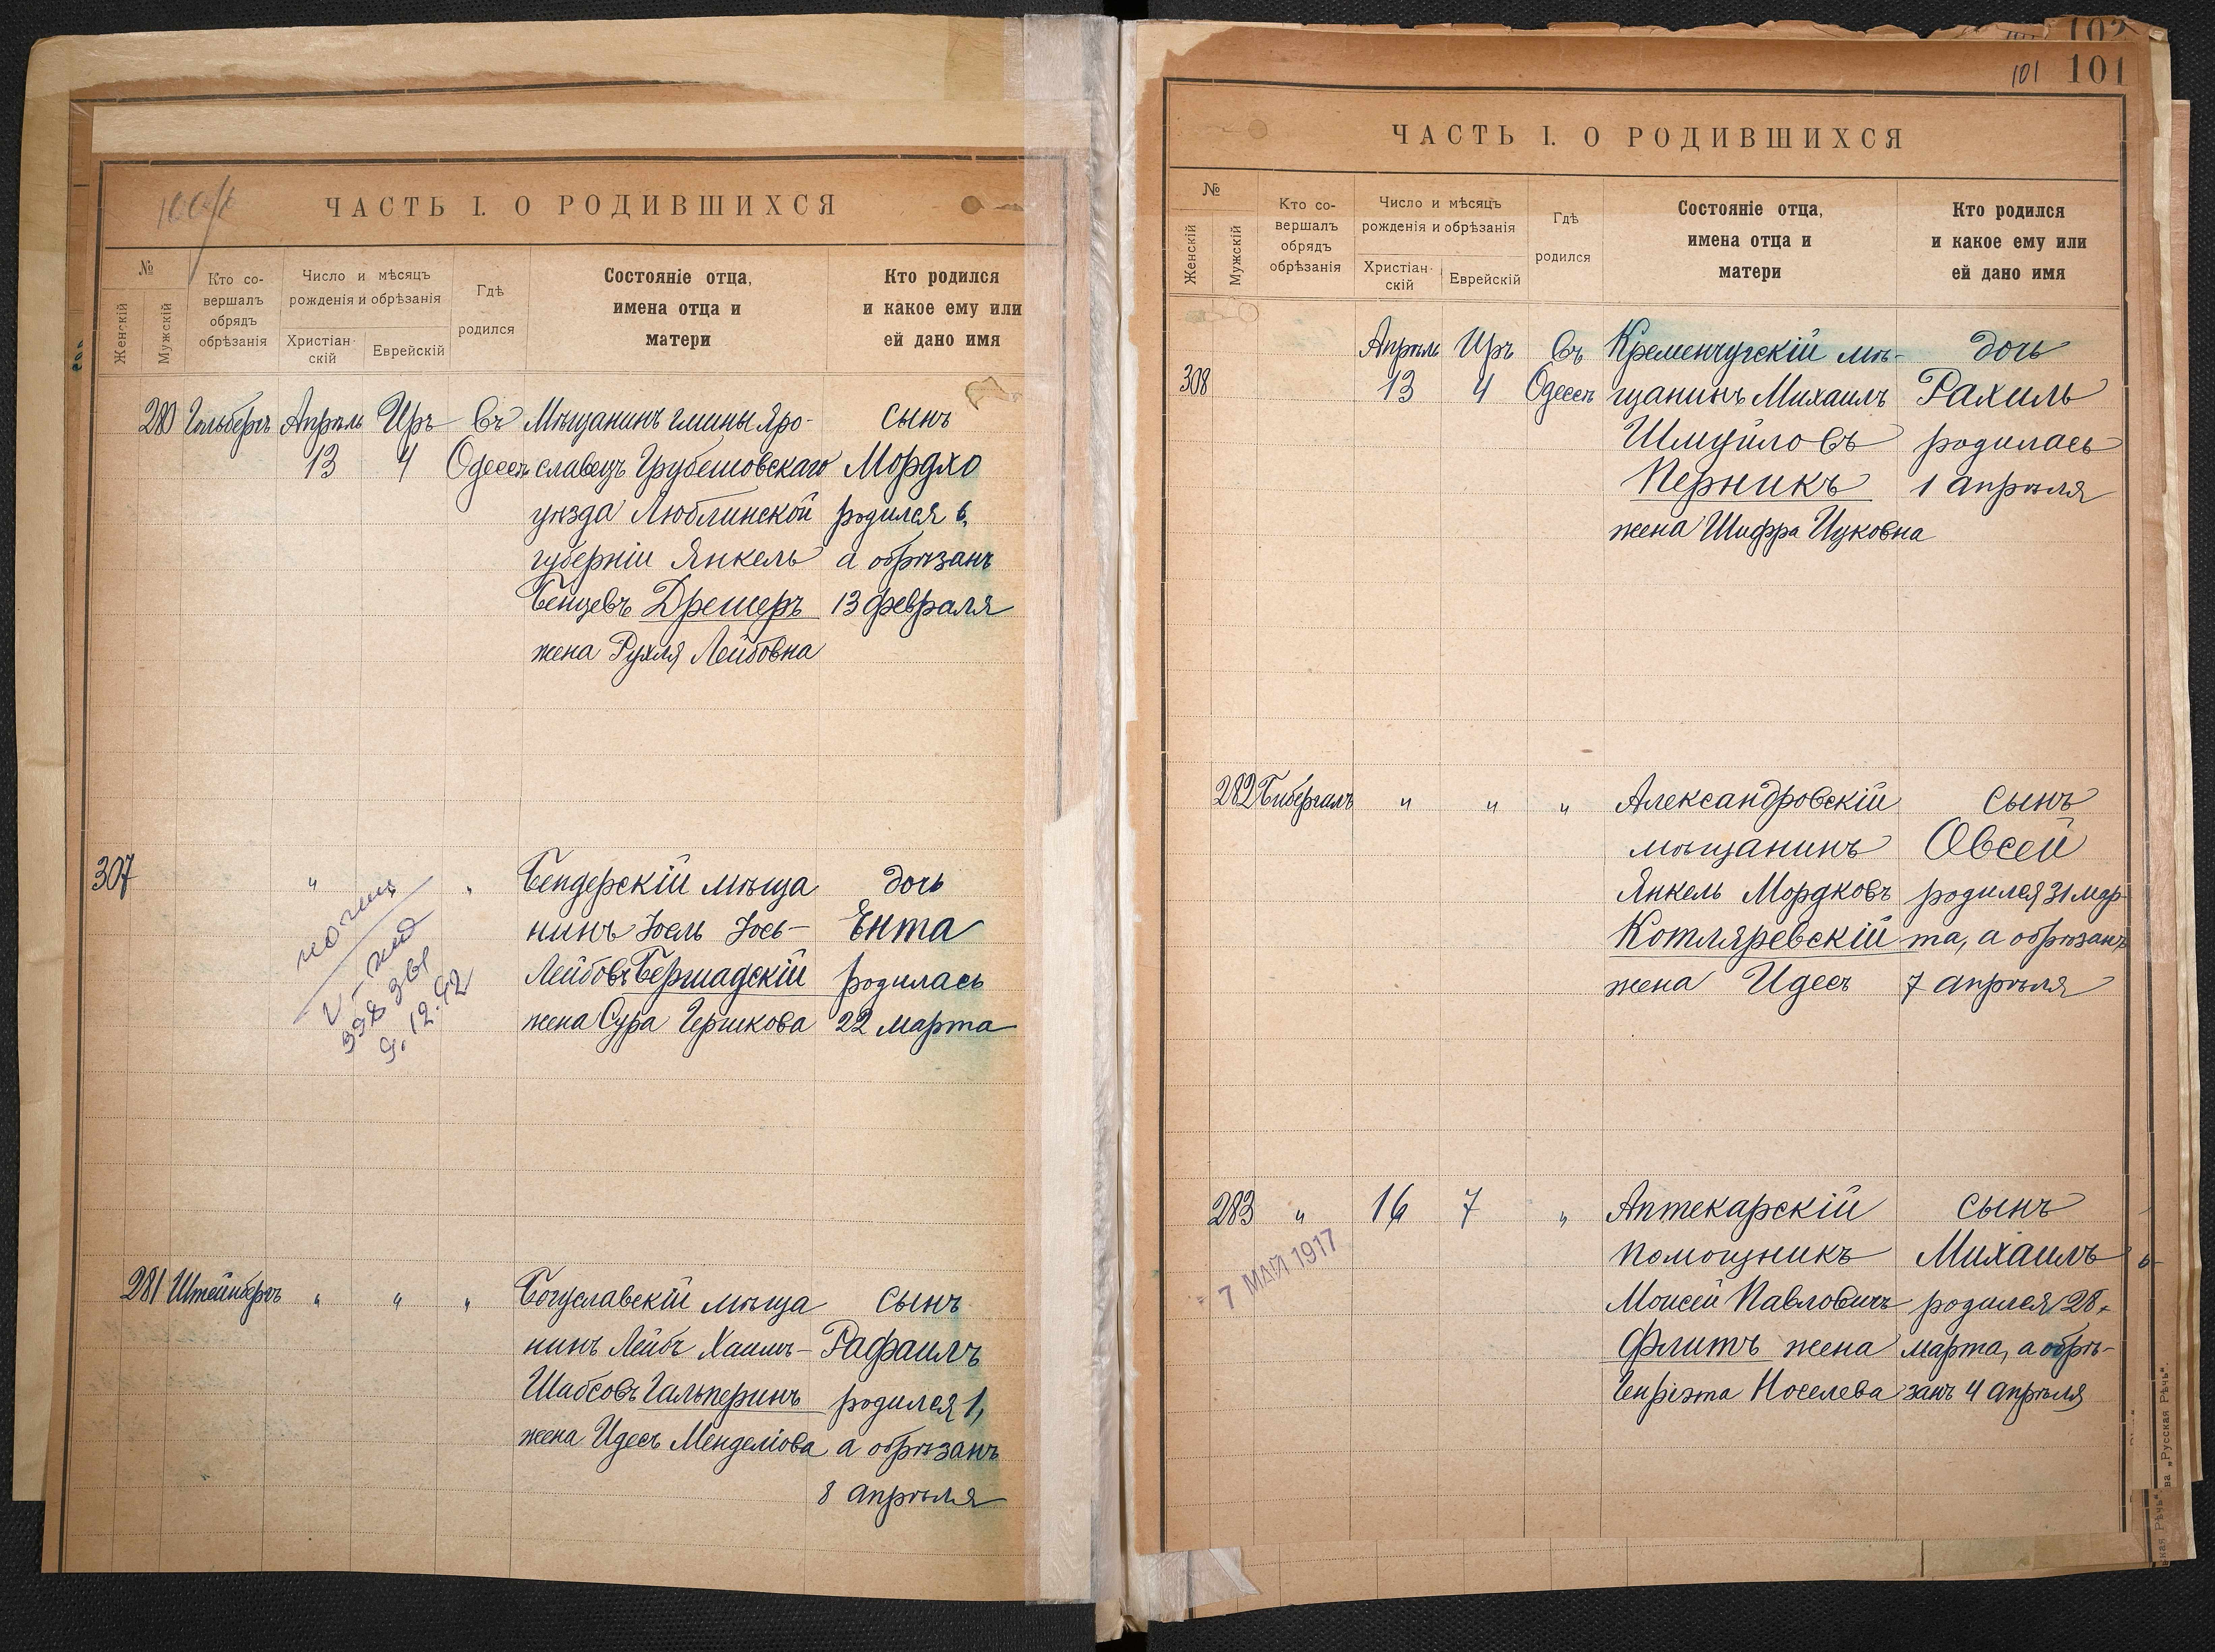 ЧАСТЬ I. О РОДИВШИХСЯ
№
Женскій
Мужскій
Кто со-
вершалъ
обрядъ
обрѣзанія
Число и мѣсяцъ
рожденія и обрѣзанія
Христіан-
скій
Еврейскій
Гдѣ
родился
Состояніе отца,
имена отца и
матери
Кто родился
и какое ему или
ей дано имя
280 Гольбергъ Апрѣль Иръ Въ Мѣщанинъ гмины Яро- сынъ
13 4 Одессѣ славецъ Грубешовскаго Мордхо
уѣзда Люблинской родился 6,
губерніи Янкель а обрѣзанъ
Бенцевъ Дрешеръ 13 февраля
жена Рухля Лейбовна
307 " " Бендерскій мѣща дочь
нинъ Іоель Іось- Ента
Лейбовъ Бершадскій родилась
жена Сура Гершкова 22 марта
9.12.42
281 Штейнбергъ " " " Богуславскій мѣща сынъ
нинъ Лейбъ Хаимъ- Рафаилъ
Шабсовъ Гальперинъ родился 1,
жена Идесъ Менделіова а обрѣзанъ
8 апрѣля
102
101 101
ЧАСТЬ I. О РОДИВШИХСЯ
№
Женскій
Мужскій
Кто со-
вершалъ
обрядъ
обрѣзанія
Число и мѣсяцъ
рожденія и обрѣзанія
Христіан-
скій
Еврейскій
Гдѣ
родился
Состояніе отца,
имена отца и
матери
Кто родился
и какое ему или
ей дано имя
Апрѣль Иръ Въ Кременчугскій мѣ- дочь
308 13 4 Одессѣ щанинъ Михаилъ Рахиль
Шмуйловъ родилась
Перникъ 1 апрѣля
жена Шифра Ицковна
282 Бибергалъ " " " Александровскій сынъ
мѣщанинъ Овсей
Янкель Мордковъ родился 31 мар
Котляревскій та, а обрѣзанъ
жена Идесъ 7 апрѣля
283 " 16 7 " Аптекарскій сынъ
помощникъ Михаилъ
7 МАЙ 1917
Моисей Павловичъ родился 28
Флитъ жена марта, а обрѣ-
Генріэта Носелева занъ 4 апрѣля
ва „Русская Рѣчь“.